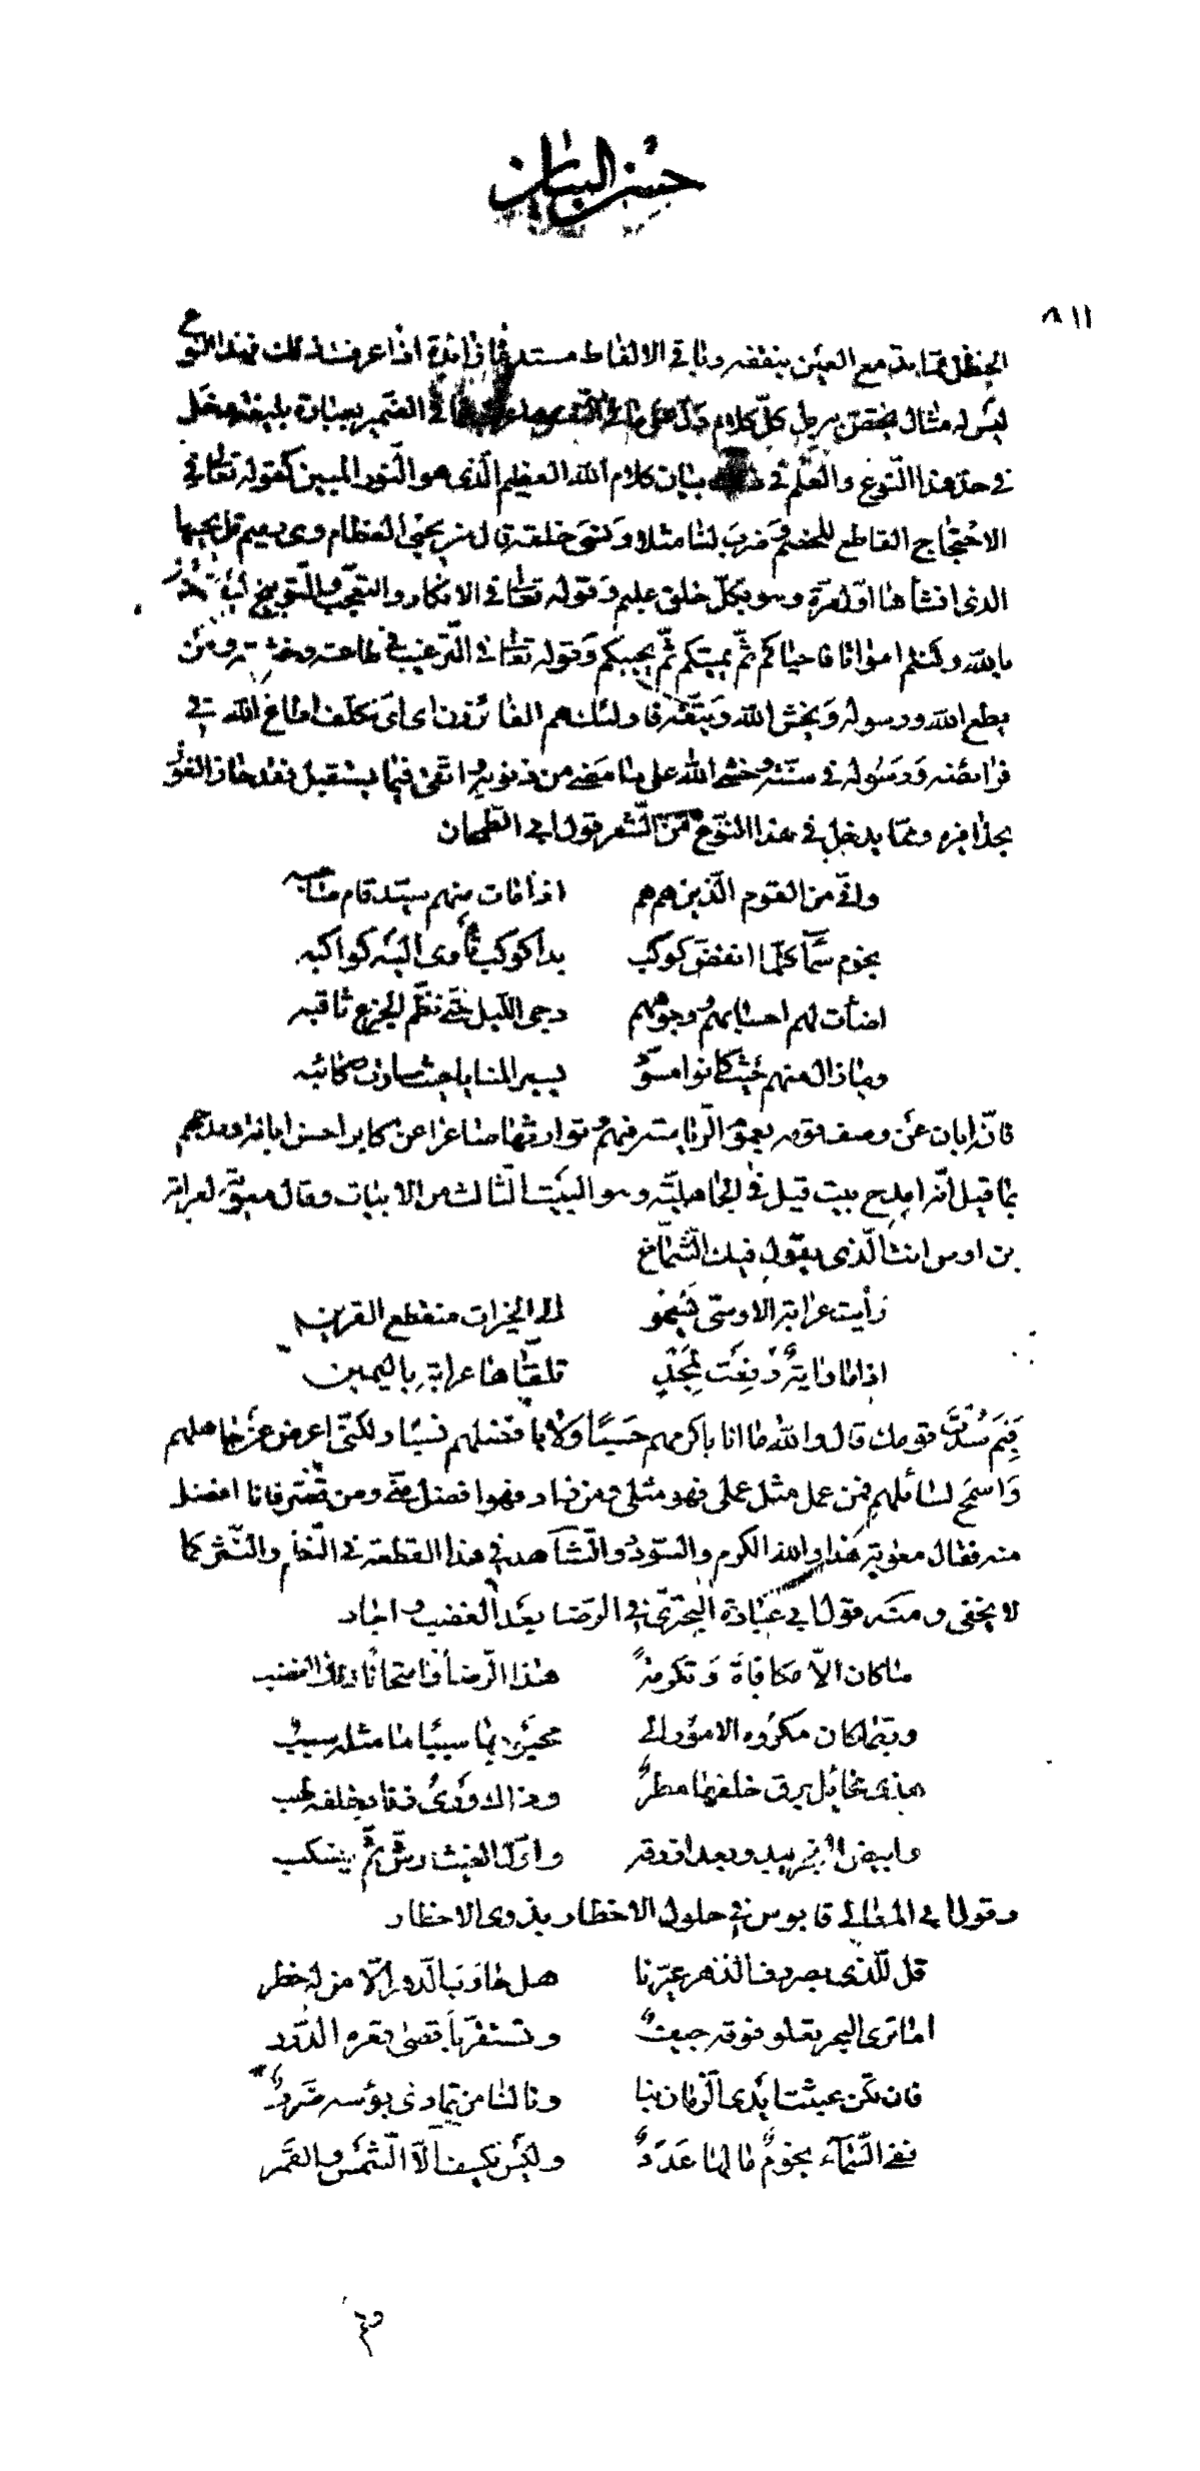 حسن البيان
١١٨
مع العين بنقفه وباقى الالفاظ مستدعاة اذا عرفت ذلك فهذا النوع
ليس له مثال يختص به بل كل كلام دل على ما فى النفس فى الضمير بعبارة بليغة دخل
فى حد هذا النوع والعلم فى بيان كلام الله العظيم الذى هو النور المبين كقوله تعالى فى
الاحتجاج القاطع للخصم وضرب لنا مثلا ونسى خلقه قال من يحيى العظام وهى رميم قل يحييها
الذى انشاها اول مرة وهو بكل خلق عليم وقوله تعالى فى الانكار والتعجب والتوبيخ
بالله وكنتم امواتا فاحياكم ثم يميتكم ثم يحييكم وقوله تعالى فى الترغيب فى طاعته وخشيته ومن
يطع الله ورسوله ويخش الله ويتقه فاولئك هم الفائزون اى اىّ مكلف اطاع الله فى
فرائضه ورسوله فى سننه وخشى الله على ما مضى من ذنوبه واتقى فيما يستقبل فقد حاز الفوز
بحذافيره ومما يدخل فى هذا النوع من الشعر قول ابى الطمحان
وانى من القوم الذين هم هم اذا مات منهم سيد قام صاحبه
نجوم سماء كلما انقض كوكب بدا كوكب تأوى اليه كواكبه
اضأت لهم احسابهم ووجوههم دجى الليل حتى نظم الجزع ثاقبه
وما زال منهم حيث كانوا مسود يسير المنايا حيث سارت كتائبه
فانه ابان عن وصف قومه بعموم الرياسة فيهم وتوارثها صاغرا عن كابر احسن ابانة ومدحهم
بما قيل انه امدح بيت قيل فى الجاهلية وهو البيت الثالث من الابيات وقال معوية لعرابة
بن اوس انت الذى يقول فيك الشماخ
رأيت عرابة الاوسى يسمو الى الخيرات منقطع القرين
اذا ما راية رفعت لمجد تلقاها عرابة باليمين
فبم سدت قومك قال والله ما انا باكرمهم حسبًا ولا بافضلهم نسبًا ولكنى اعرض عن جاهلهم
واسمح لسائلهم فمن عمل مثل عملى فهو مثلى ومن زاد فهو افضل منى ومن قصر فانا افضل
منه فقال معوية هذا والله الكرم والسودد والشاهد فى هذا القطعة فى النظم والنثر كما
لا يخفى ومنه قول ابى عبادة البحترى فى الرضا بعد الغضب واجاد
ما كان الا مكافاة وتكرمة هذا الرضا وامتحانًا ذلك الغضب
وربما كان مكروه الامور الى محبوبها سببا ما مثله سبب
هذى مخايل برق خلفها مطر وذاك ورى زناد خلفه لهب
وابيض الفجر يبدو بعد ازرقه واول الغيث رش ثم ينسكب
وقول ابى المعالى قابوس فى حلول الاخطار بذوى الاخطار
قل للذى بصروف الدهر عيرنا هل حارب الدهر الا من له خطر
اما ترى البحر يعلو فوقه جيف وتستقر باقصى قعره الدرر
فان تكن عبثت ايدى الزمان بنا ونالنا من تمادى بؤسه ضرر
ففى السماء نجوم ما لها عدد وليس يكسف الا الشمس والقمر